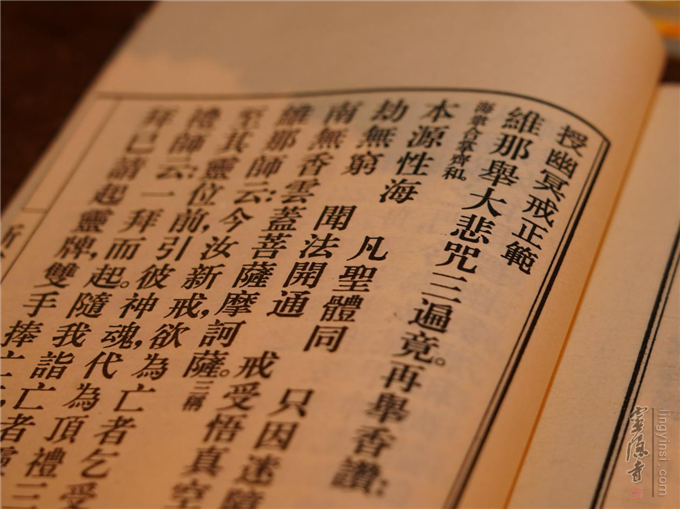 授幽冥戒正範
維那舉大悲咒三遍竟。再舉香讚:
海衆合掌齊和。
本源性海　凡聖體同　只因迷障
劫無窮　聞法開通　戒受悟真空
南無香雲蓋菩薩摩訶薩。三稱
維那師云:今汝新戒,欲為亡者乞受
至其靈位前,引彼神魂,代為頂禮三
禮師云:一拜而起。隨我詣亡者靈
拜已請起靈牌,雙手捧
靈隱寺
lingyinsi.com